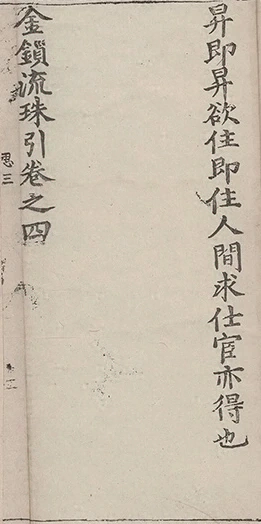 昇即昇欲住即住人間求仕宦亦得也
金鎖流珠引卷之四
思三